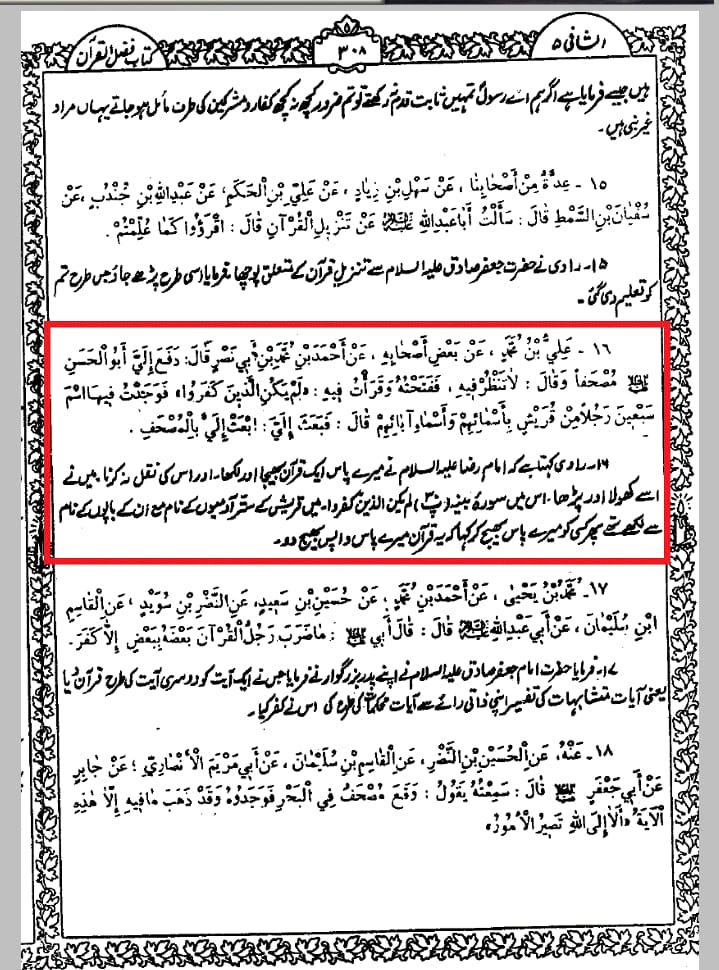 الشافی ۵
۳۰۸
کتاب فضل القرآن
ہیں جیسے فرمایا ہے اگر ہم اے رسولؐ تمہیں ثابت قدم نہ رکھتے تو تم ضرور کچھ نہ کچھ کفار و مشرکین کی طرف مائل ہو جاتے یہاں مراد
غیر نبی ہیں۔
١٥ - عِدَّةٌ مِنْ أَصْحَابِنَا ، عَنْ سَهْلِ بْنِ زِيَادٍ ، عَنْ عَلِيِّ بْنِ الْحَكَمِ، عَنْ عَبْدِاللهِ بْنِ جُنْدُبٍ ،عَنْ
سُفْيَانَ بْنِ السَّمْطِ قَالَ : سَأَلْتُ أَبَاعَبْدِاللهِ عليه السلام عَنْ تَنْزِيلِ الْقُرْآنِ قَالَ : اقْرَؤُوا كَمَا عُلِّمْتُمْ .
۱۵۔ راوی نے حضرت جعفر صادق علیہ السلام سے تنزیل قرآن کے متعلق پوچھا، فرمایا اسی طرح پڑھے جاؤ جس طرح تم
کو تعلیم دی گئی۔
١٦ - عَلِيُّ بْنُ مُحَمَّدٍ ، عَنْ بَعْضِ أَصْحَابِهِ ، عَنْ أَحْمَدَ بْنِ مُحَمَّدِ بْنِ أَبِي نَصْرٍ قَالَ: دَفَعَ إِلَيَّ أَبُو الْحَسَنِ
عليه السلام مُصْحَفاً وَقَالَ : لَا تَنْظُرْ فِيهِ ، فَفَتَحْتُهُ وَقَرَأْتُ فِيهِ : «لَمْ يَكُنِ الَّذِينَ كَفَرُوا» فَوَجَدْتُ فِيهَا اسْمَ
سَبْعِينَ رَجُلاً مِنْ قُرَيْشٍ بِأَسْمَائِهِمْ وَأَسْمَاءِ آبَائِهِمْ قَالَ : فَبَعَثَ إِلَيَّ : ابْعَثْ إِلَيَّ بِالْمُصْحَفِ .
۱۶۔ راوی کہتا ہے کہ امام رضا علیہ السلام نے میرے پاس ایک قرآن بھیجا اور لکھا۔ اور اس کی نقل نہ کرنا۔ میں نے
اسے کھولا اور پڑھا۔ اس میں سورۂ بینہ (پ۳۰) لم یکن الذین کفروا۔ میں قریش کے ستر آدمیوں کے نام مع ان کے باپوں کے نام
سے لکھے تھے پھر کسی کو میرے پاس بھیج کر کہا کہ یہ قرآن میرے پاس واپس بھیج دو۔
١٧- مُحَمَّدُ بْنُ يَحْيَى ، عَنْ أَحْمَدَ بْنِ مُحَمَّدٍ ، عَنْ حُسَيْنِ بْنِ سَعِيدٍ، عَنِ النَّضْرِ بْنِ سُوَيْدٍ ، عَنِ الْقَاسِمِ
ابْنِ سُلَيْمَانَ ، عَنْ أَبِي عَبْدِاللهِ عليه السلام قَالَ : قَالَ أَبِي عليه السلام : مَا ضَرَبَ رَجُلٌ الْقُرْآنَ بَعْضَهُ بِبَعْضٍ إِلَّا كَفَرَ.
۱۷۔ فرمایا حضرت امام جعفر صادق علیہ السلام نے اپنے پدر بزرگوار نے فرمایا جس نے ایک آیت کو دوسری آیت کی طرح قرآن دیا
یعنی آیات متشابہات کی تفسیر اپنی ذاتی رائے سے آیات محکمات کی طرح کی اس نے کفر کیا۔
١٨ - عَنْهُ، عَنِ الْحُسَيْنِ بْنِ النَّضْرِ، عَنِ الْقَاسِمِ بْنِ سُلَيْمَانَ ، عَنْ أَبِي مَرْيَمَ الْأَنْصَارِيِّ ؛ عَنْ جَابِرٍ
عَنْ أَبِي جَعْفَرٍ عليه السلام قَالَ : سَمِعْتُهُ يَقُولُ : وَقَعَ مُصْحَفٌ فِي الْبَحْرِ فَوَجَدُوهُ وَقَدْ ذَهَبَ مَا فِيهِ إِلَّا هٰذِهِ
الْآيَةَ «أَلَا إِلَى اللهِ تَصِيرُ الْأُمُورُ»